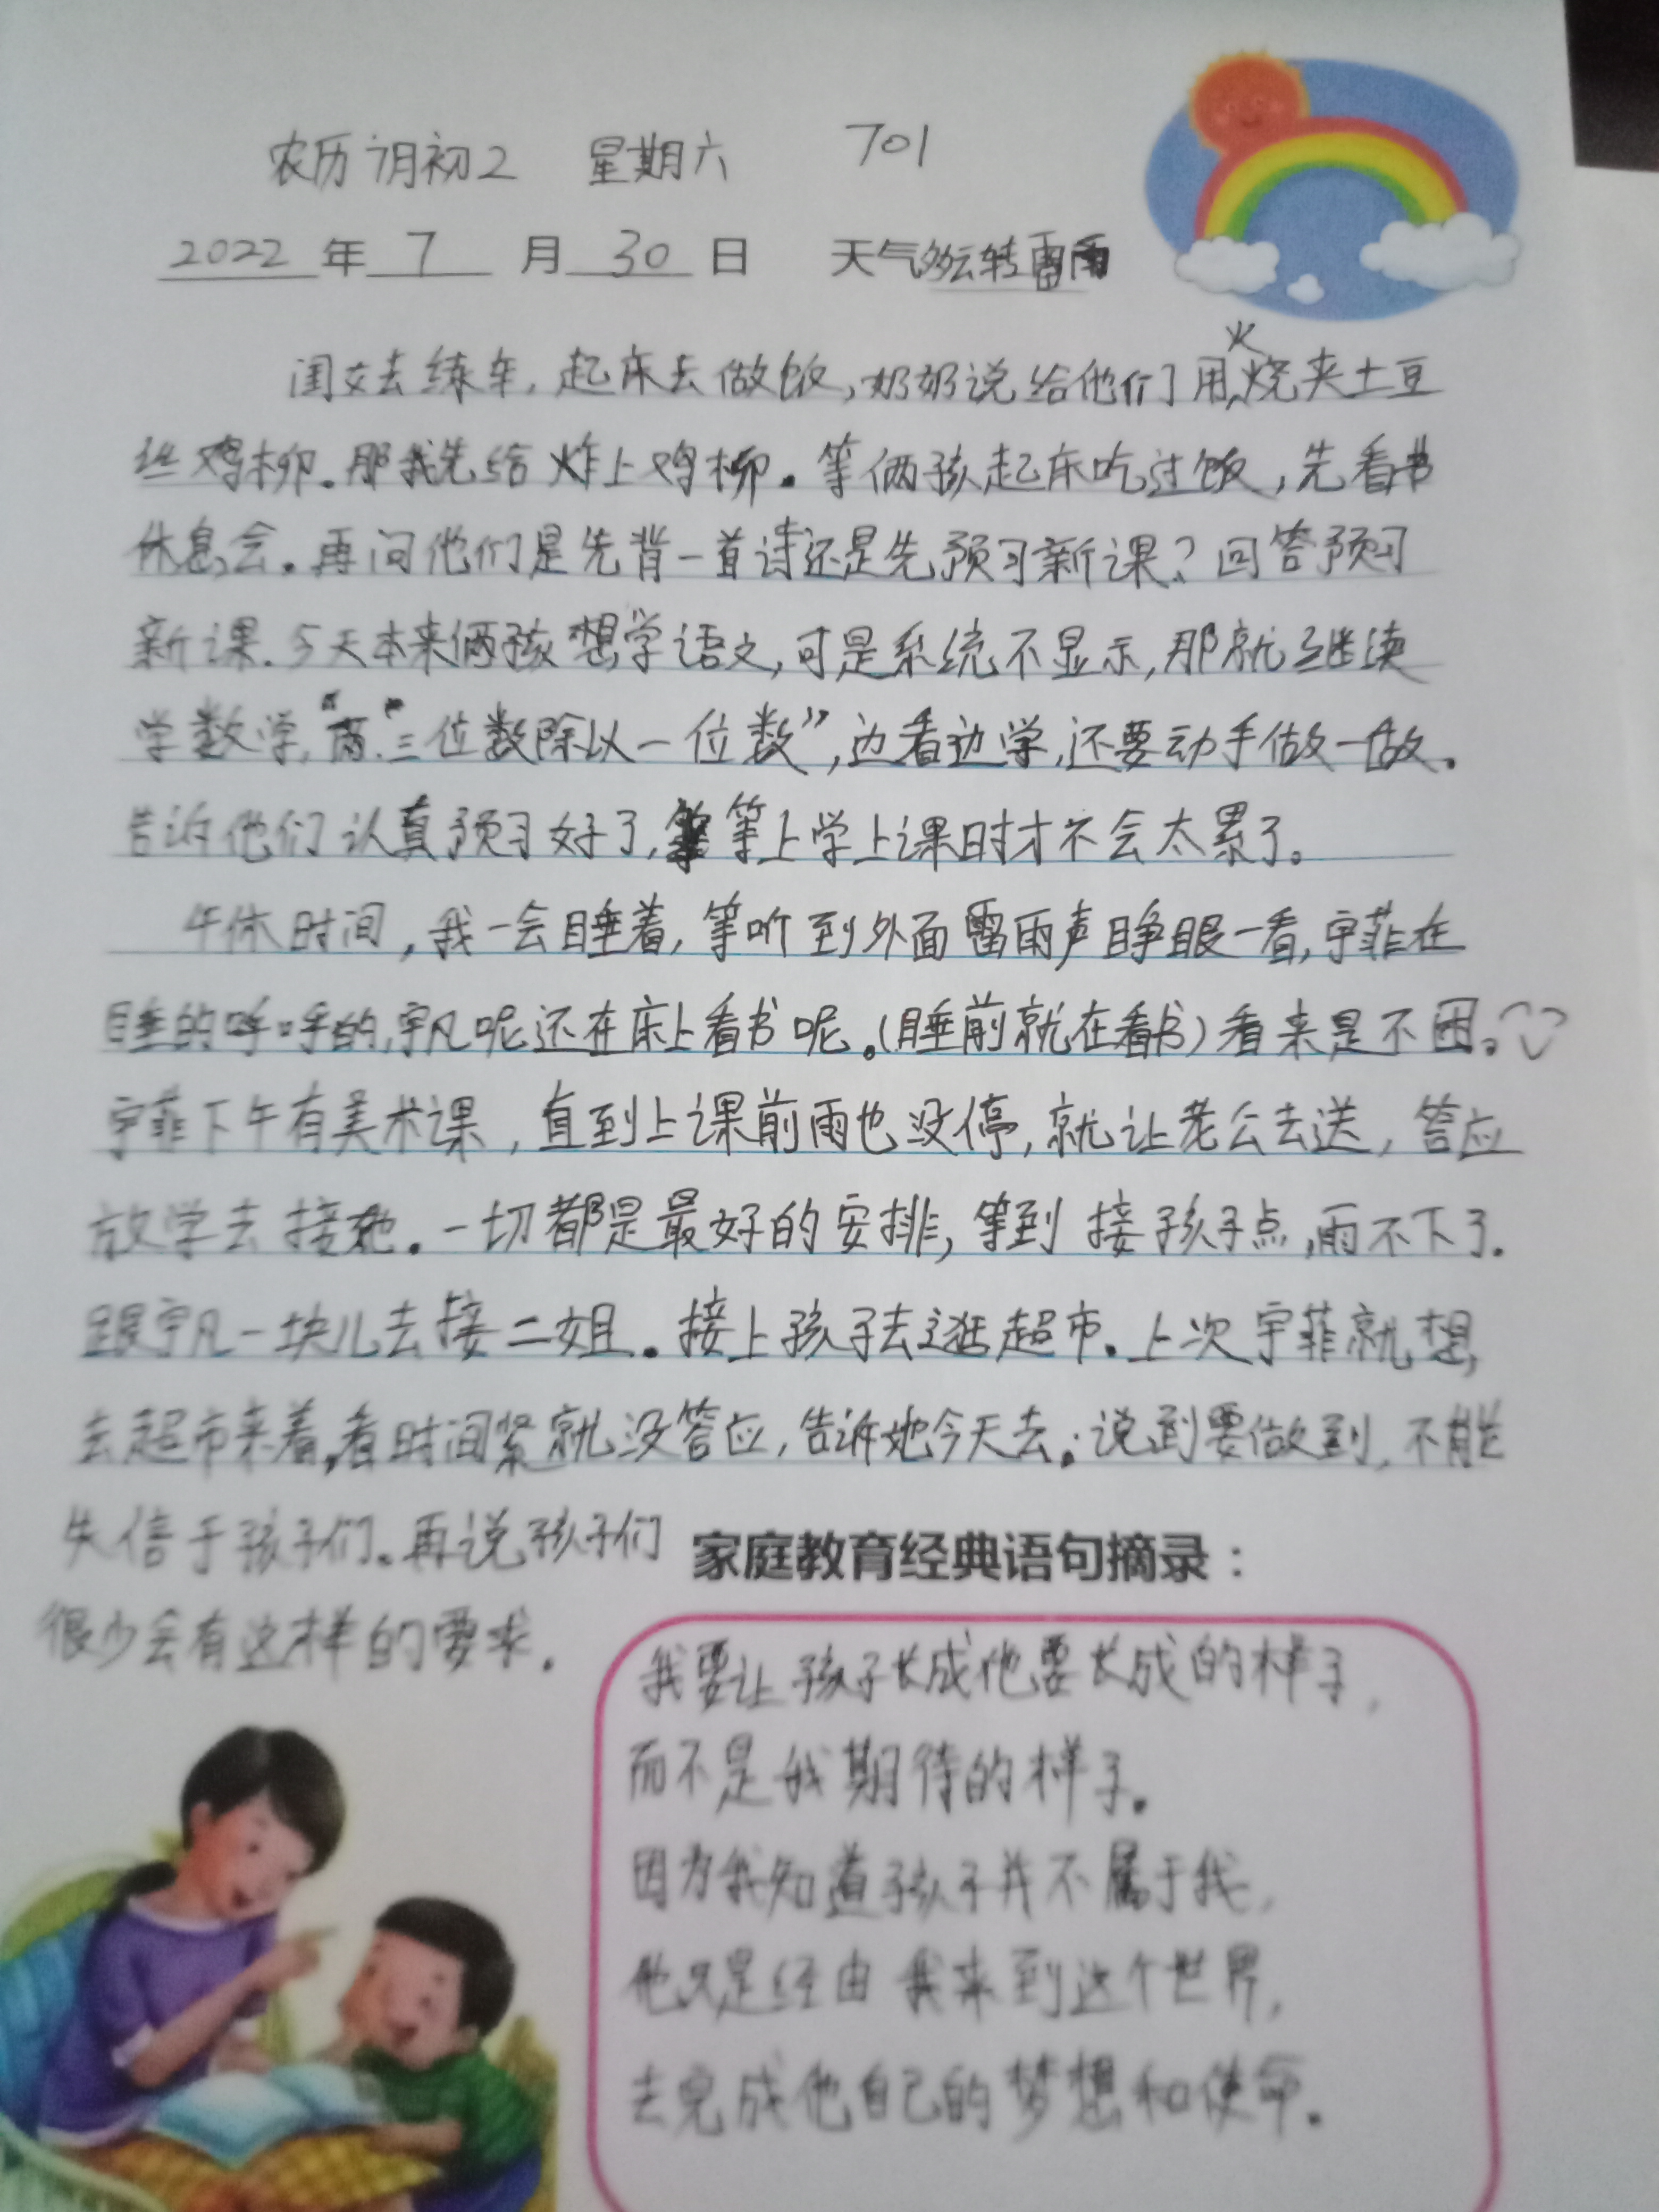 农历7月初2 星期六 701
2022年7月30日 天气多云转雷雨
闺女去练车,起床去做饭,奶奶说给他们用火烧夹土豆
丝鸡柳.那我先给炸上鸡柳。等俩孩起床吃过饭,先看书
休息会。再问他们是先背一首诗还是先预习新课?回答预习
新课.今天本来俩孩想学语文,可是系统不显示,那就继续
学数学,“两.三位数除以一位数”,边看边学,还要动手做一做。
告诉他们认真预习好了,等上学上课时才不会太累了。
午休时间,我一会睡着,等听到外面雷雨声睁眼一看,宇菲在
睡的呼呼的,宇凡呢还在床上看书呢。(睡前就在看书)看来是不困。
宇菲下午有美术课,直到上课前雨也没停,就让老公去送,答应
放学去接她。一切都是最好的安排,等到接孩子点,雨不下了.
跟宇凡一块儿去接二姐。接上孩子去逛超市.上次宇菲就想,
去超市来着,看时间紧就没答应,告诉她今天去.说到要做到,不能
失信于孩子们.再说孩子们
很少会有这样的要求.
家庭教育经典语句摘录:
我要让孩子长成他要长成的样子,
而不是我期待的样子。
因为我知道孩子并不属于我,
他只是经由我来到这个世界,
去完成他自己的梦想和使命.